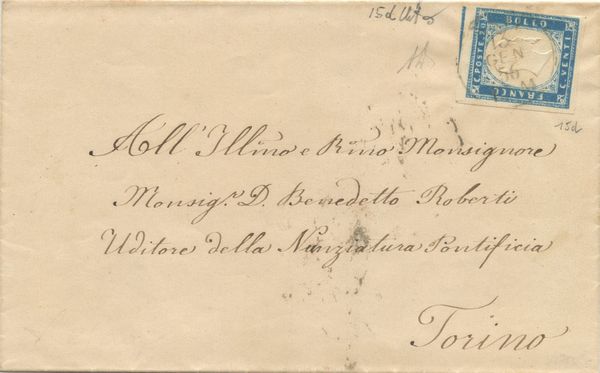 15d
BOLLO
C. POSTE 20
C. VENTI
FRANCO
13
GEN
56
15d
All' Illmo e Rmo Monsignore
Monsig.r D. Benedetto Roberti
Uditore della Nunziatura Pontificia
Torino